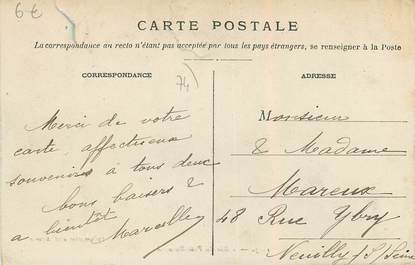 6€
CARTE POSTALE
La correspondance au recto n'étant pas acceptée par tous les pays étrangers, se renseigner à la Poste
CORRESPONDANCE
74)
Merci de votre
carte affectueux
souvenirs à tous deux
bons baisers &
a bientôt
Marcelle
ADRESSE
Monsieur
& Madame
Mareux
48 Rue Ybry
Neuilly S/Seine